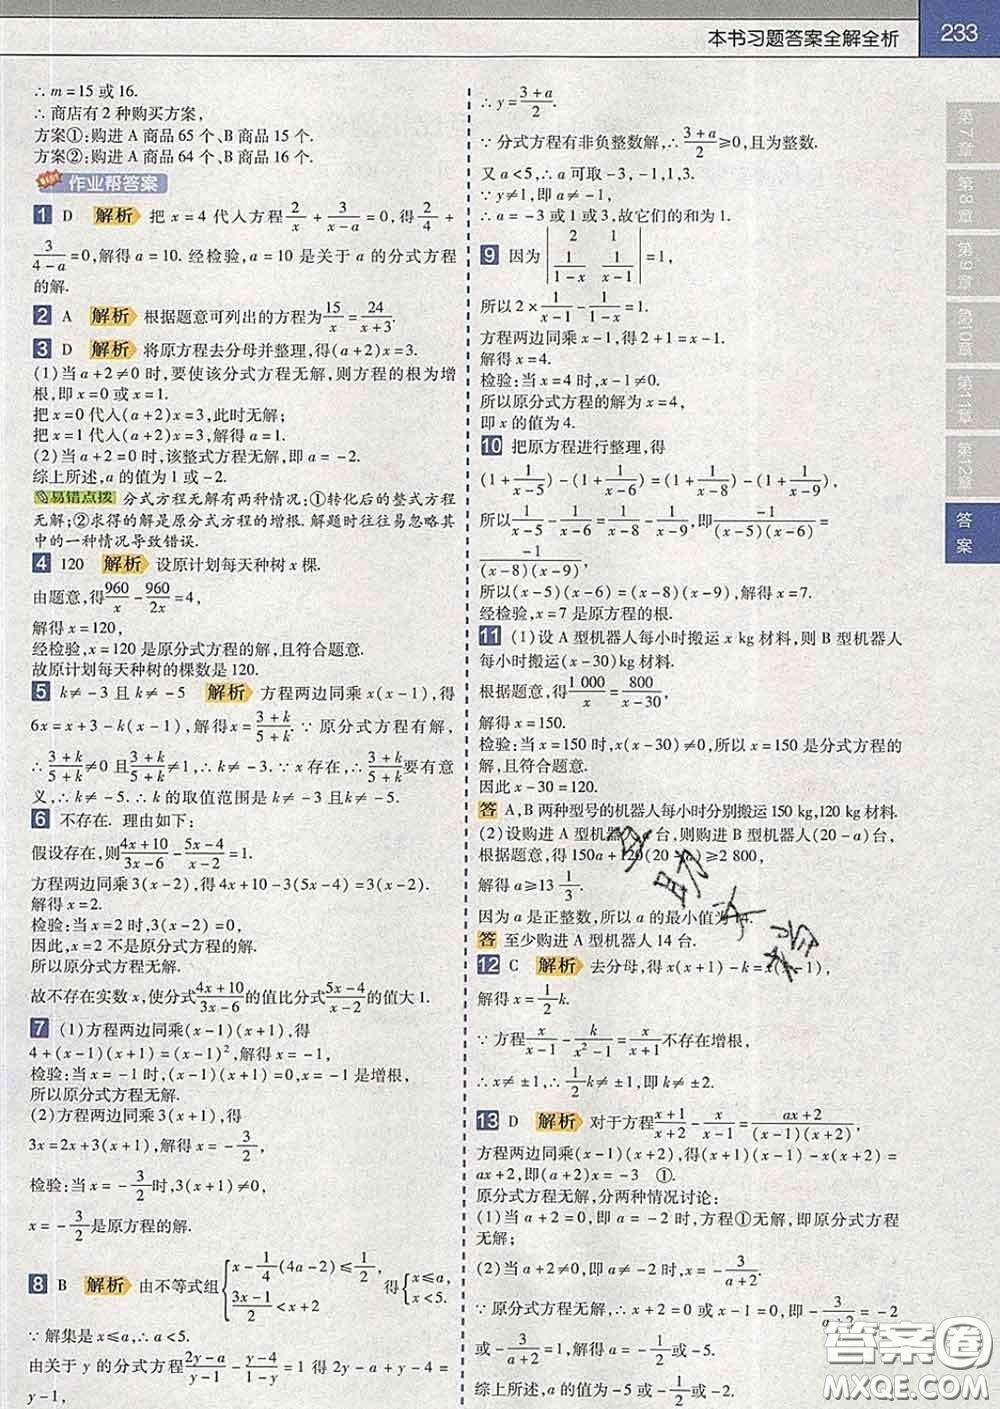 本书习题答案全解全析 233
∴ m = 15 或 16.
∴ 商店有 2 种购买方案,
方案①:购进 A 商品 65 个、B 商品 15 个.
方案②:购进 A 商品 64 个、B 商品 16 个.
作业帮答案
1 D 解析 把 x = 4 代入方程 2/x + 3/(x-a) = 0,得 2/4 +
3/(4-a) = 0,解得 a = 10. 经检验,a = 10 是关于 a 的分式方程
的解.
2 A 解析 根据题意可列出的方程为 15/x = 24/(x+3).
3 D 解析 将原方程去分母并整理,得(a+2)x = 3.
(1)当 a+2≠0 时,要使该分式方程无解,则方程的根为增
根,即 x = 0 或 x = 1.
把 x = 0 代入(a+2)x = 3,此时无解;
把 x = 1 代入(a+2)x = 3,解得 a = 1.
(2)当 a+2 = 0 时,该整式方程无解,即 a = -2.
综上所述,a 的值为 1 或 -2.
易错点拨 分式方程无解有两种情况:①转化后的整式方程
无解;②求得的解是原分式方程的增根. 解题时往往易忽略其
中的一种情况导致错误.
4 120 解析 设原计划每天种树 x 棵.
由题意,得 960/x - 960/2x = 4,
解得 x = 120,
经检验,x = 120 是原分式方程的解,且符合题意.
故原计划每天种树的棵数是 120.
5 k≠-3 且 k≠-5 解析 方程两边同乘 x(x-1),得
6x = x+3-k(x-1),解得 x = (3+k)/(5+k). ∵ 原分式方程有解,
∴ (3+k)/(5+k)≠0 且 (3+k)/(5+k)≠1,∴ k≠-3. ∵ x 存在,∴ (3+k)/(5+k) 要有意
义,∴ k≠-5. ∴ k 的取值范围是 k≠-3 且 k≠-5.
6 不存在. 理由如下:
假设存在,则 (4x+10)/(3x-6) - (5x-4)/(x-2) = 1.
方程两边同乘 3(x-2),得 4x+10-3(5x-4) = 3(x-2).
解得 x = 2.
检验:当 x = 2 时,3(x-2) = 0.
因此,x = 2 不是原分式方程的解.
所以原分式方程无解.
故不存在实数 x,使分式 (4x+10)/(3x-6) 的值比分式 (5x-4)/(x-2) 的值大 1.
7 (1)方程两边同乘(x-1)(x+1),得
4+(x-1)(x+1) = (x-1)²,解得 x = -1,
检验:当 x = -1 时,(x-1)(x+1) = 0,x = -1 是增根,
所以原分式方程无解.
(2)方程两边同乘 3(x+1),得
3x = 2x+3(x+1),解得 x = -3/2,
检验:当 x = -3/2 时,3(x+1)≠0,
x = -3/2 是原方程的解.
8 B 解析 由不等式组 { x - 1/4(4a-2)≤1/2, (3x-1)/2 < x+2 得 { x≤a, x<5.
∵ 解集是 x≤a,∴ a<5.
由关于 y 的分式方程 (2y-a)/(y-1) - (y-4)/(1-y) = 1 得 2y-a+y-4 =
y-1,
∴ y = (3+a)/2.
∵ 分式方程有非负整数解,∴ (3+a)/2≥0,且为整数.
又 a<5,∴ a 可取 -3,-1,1,3.
∵ y≠1,即 a≠-1,
∴ a = -3 或 1 或 3,故它们的和为 1.
9 因为 | 2 1 ; 1/(1-x) 1/(x-1) | = 1,
所以 2×1/(x-1) - 1/(1-x) = 1.
方程两边同乘 x-1,得 2+1 = x-1.
解得 x = 4.
检验:当 x = 4 时,x-1≠0.
所以原分式方程的解为 x = 4,
即 x 的值为 4.
10 把原方程进行整理,得
(1+1/(x-5)) - (1+1/(x-6)) = (1+1/(x-8)) - (1+1/(x-9)),
所以 1/(x-5) - 1/(x-6) = 1/(x-8) - 1/(x-9),即 -1/((x-5)(x-6)) =
-1/((x-8)(x-9)),
所以(x-5)(x-6) = (x-8)(x-9),解得 x = 7.
经检验,x = 7 是原方程的根.
11 (1)设 A 型机器人每小时搬运 x kg 材料,则 B 型机器人
每小时搬运(x-30)kg 材料.
根据题意,得 1 000/x = 800/(x-30),
解得 x = 150.
检验:当 x = 150 时,x(x-30)≠0,所以 x = 150 是分式方程的
解,且符合题意.
因此 x-30 = 120.
答 A,B 两种型号的机器人每小时分别搬运 150 kg,120 kg 材料.
(2)设购进 A 型机器人 a 台,则购进 B 型机器人(20-a)台,
根据题意,得 150a+120(20-a)≥2 800,
解得 a≥13 1/3.
因为 a 是正整数,所以 a 的最小值为 14.
答 至少购进 A 型机器人 14 台.
12 C 解析 去分母,得 x(x+1)-k = x(x-1),
解得 x = 1/2 k.
∵ 方程 x/(x-1) - k/(x²-1) = x/(x+1) 不存在增根,
∴ x≠±1,∴ 1/2 k≠±1,即 k≠±2.
13 D 解析 对于方程 (x+1)/(x+2) - x/(x-1) = (ax+2)/((x-1)(x+2)),
方程两边同乘(x-1)(x+2),得(x+1)(x-1)-x(x+2) =
ax+2,即(a+2)x = -3 ①.
原分式方程无解,分两种情况讨论:
(1)当 a+2 = 0,即 a = -2 时,方程①无解,即原分式方程
无解;
(2)当 a+2≠0,即 a≠-2 时,解①得 x = -3/(a+2).
∵ 原分式方程无解,∴ x+2 = 0 或 x-1 = 0,即 -3/(a+2) = -2
或 -3/(a+2) = 1,解得 a = -1/2 或 a = -5.
综上所述,a 的值为 -5 或 -1/2 或 -2.
第7章
第8章
第9章
第10章
第11章
第12章
答案
答案圈
MXQE.COM